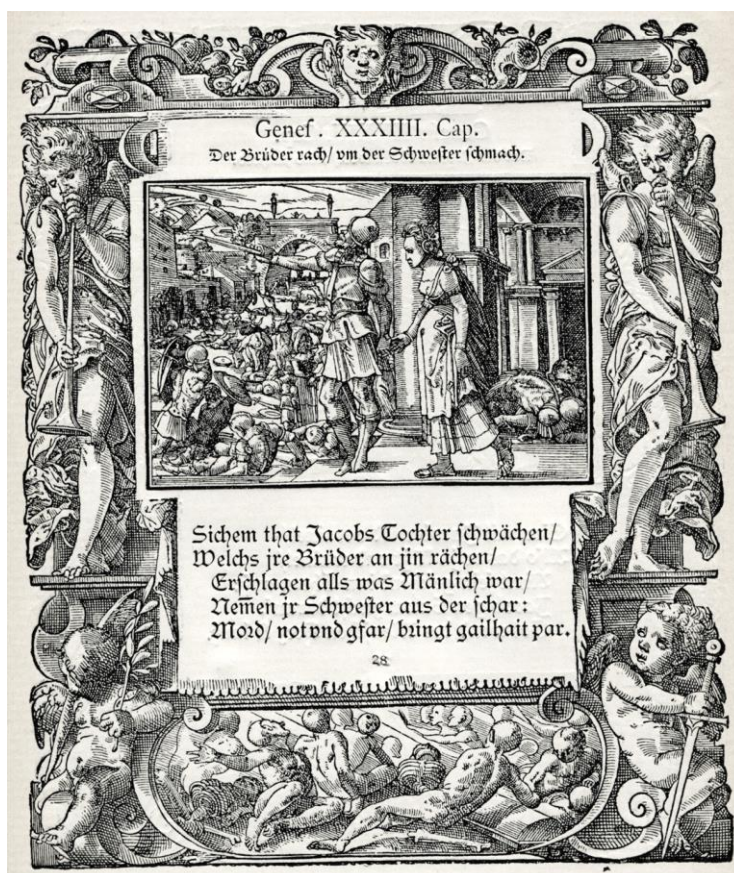 Genes. XXXIIII. Cap.
Der Brüder rach/ vm der Schwester schmach.
Sichem that Jacobs Tochter schwächen/
Welchs jre Brüder an jin rächen/
Erschlagen alls was Mänlich war/
Nem̄en jr Schwester aus der schar:
Mord/ not vnd gfar/ bringt gailhait par.
28